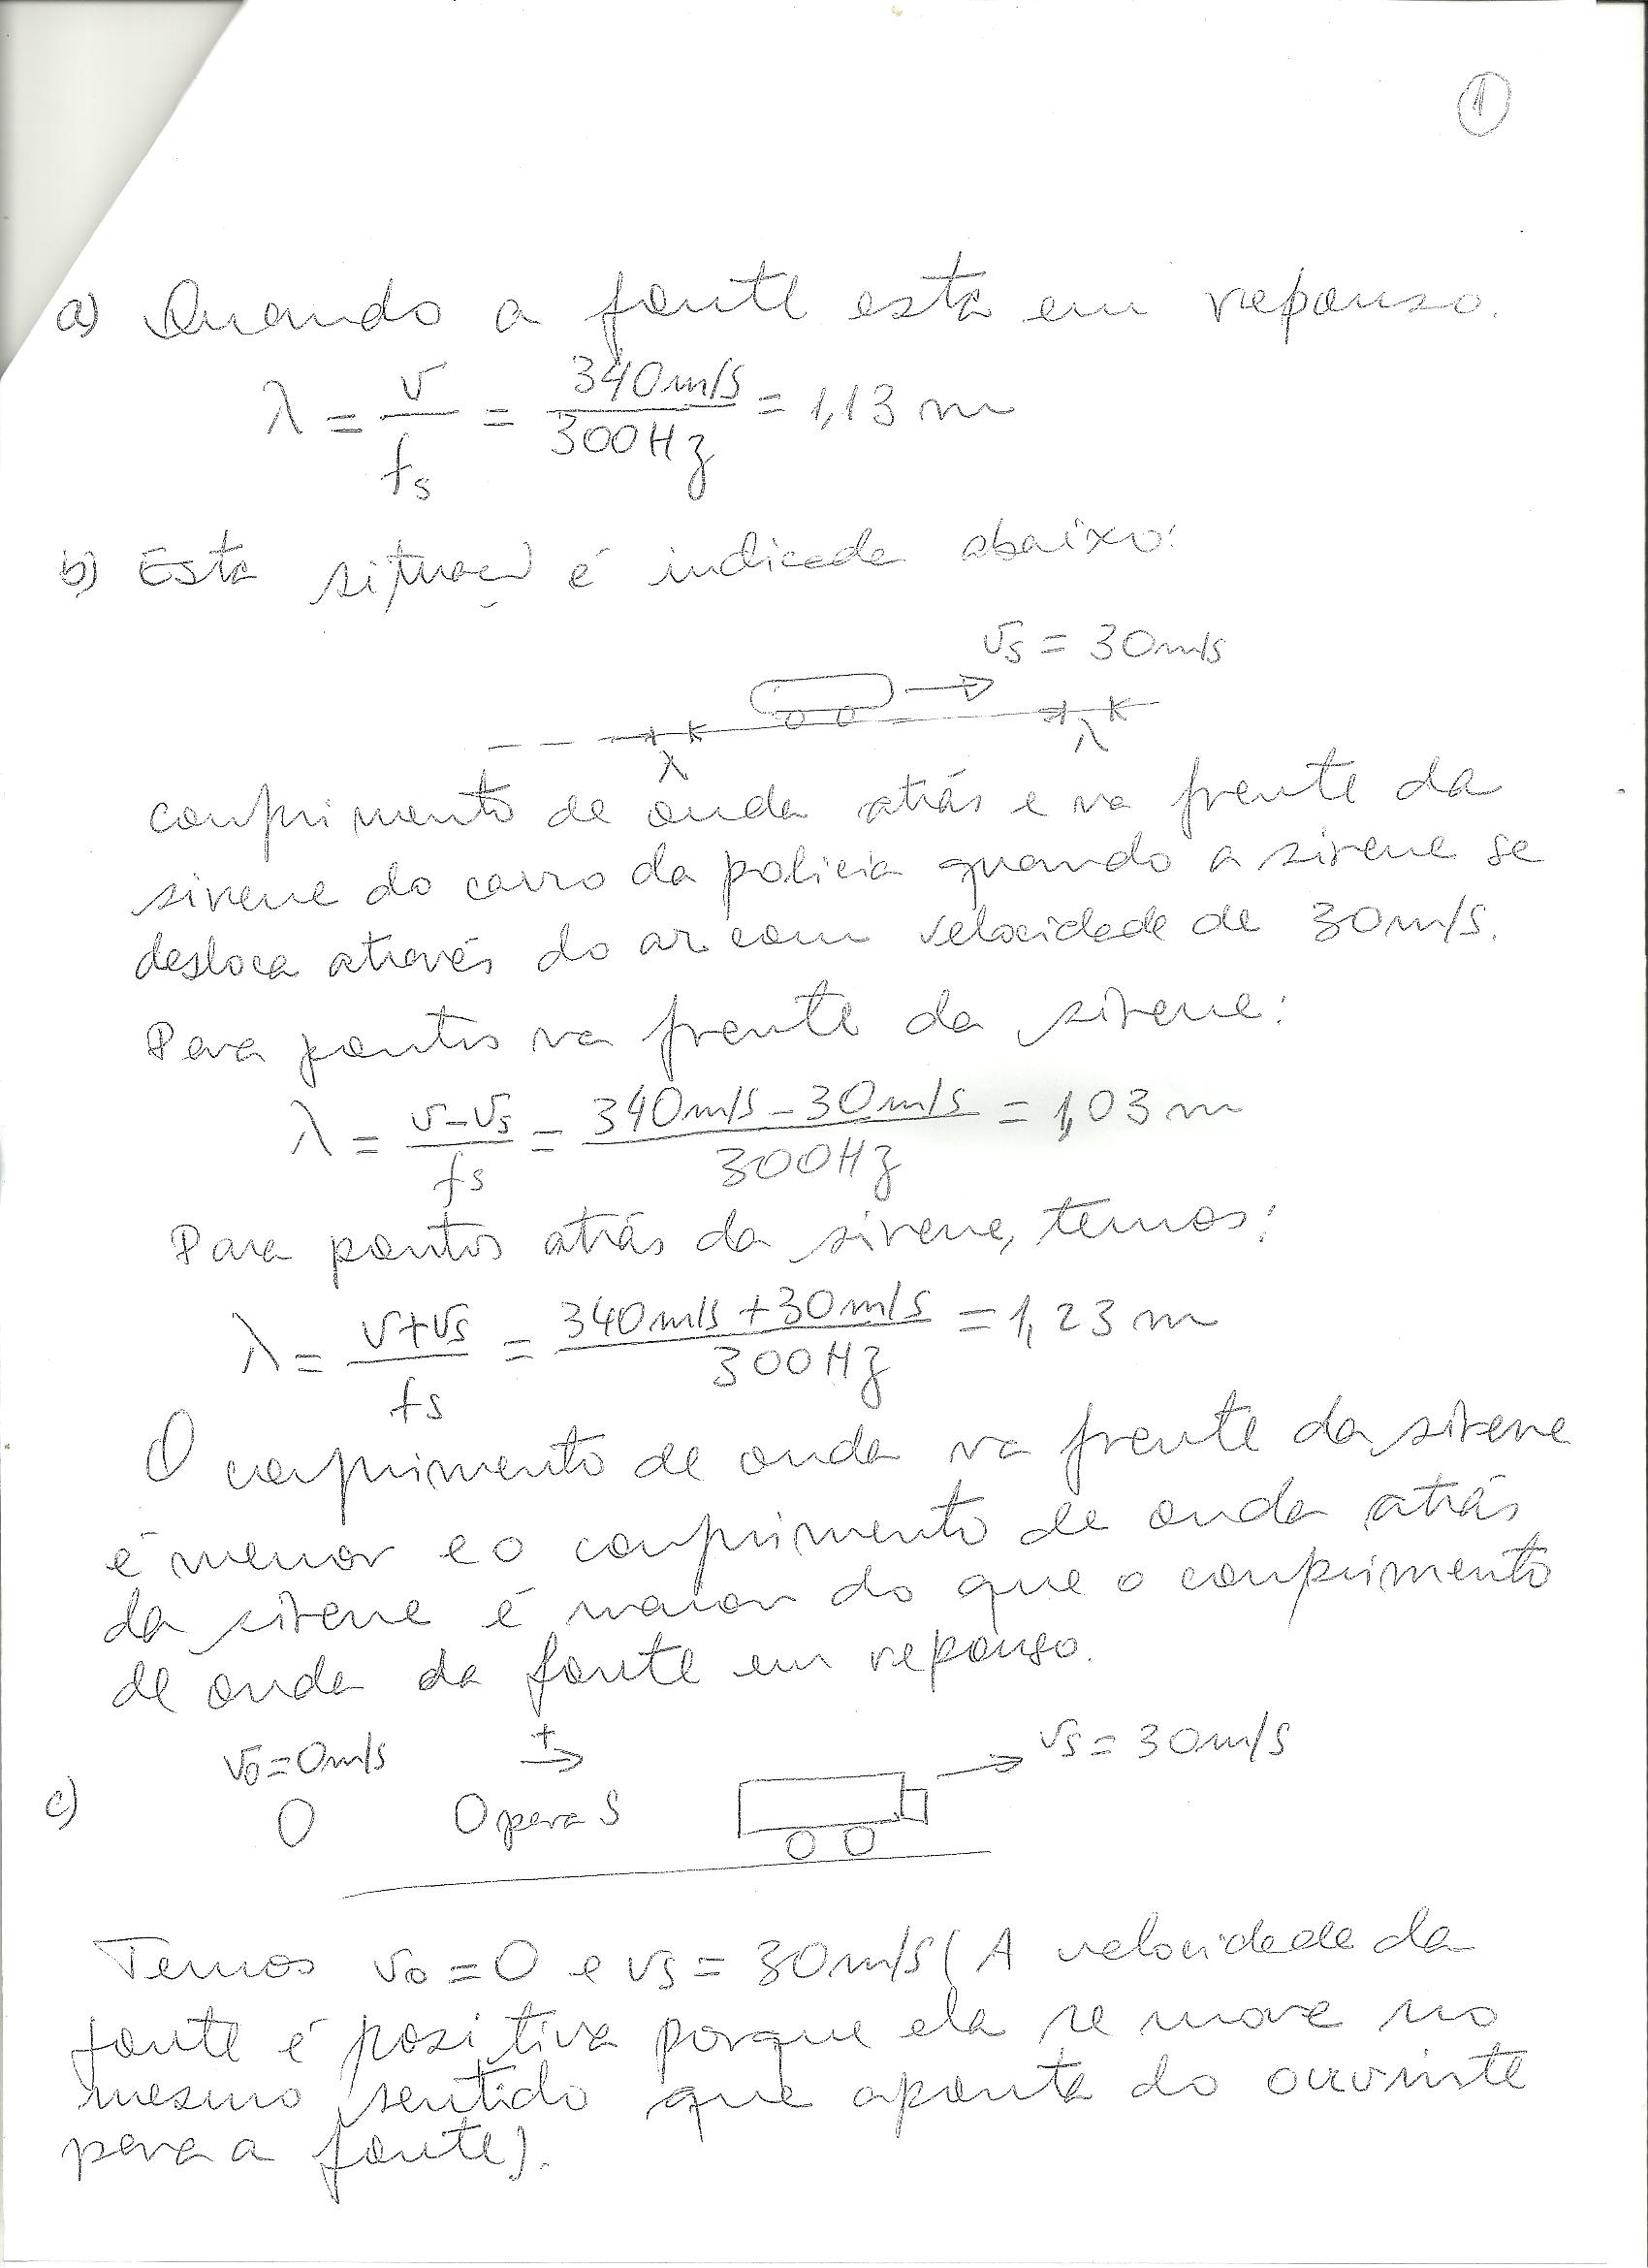 1
a) Quando a fonte está em repouso.
λ = v/fs = 340m/s / 300Hz = 1,13 m
b) Esta situação é indicada abaixo:
vs = 30m/s
λ λ
comprimento de onda atrás e na frente da
sirene do carro da polícia quando a sirene se
desloca através do ar com velocidade de 30m/s.
Para pontos na frente da sirene:
λ = v-vs/fs = 340m/s - 30m/s / 300Hz = 1,03 m
Para pontos atrás da sirene, temos:
λ = v+vs/fs = 340m/s + 30m/s / 300Hz = 1,23 m
O comprimento de onda na frente da sirene
é menor e o comprimento de onda atrás
da sirene é maior do que o comprimento
de onda da fonte em repouso.
c) vo = 0m/s + → vs = 30m/s
O O para S
Temos vo = 0 e vs = 30m/s (A velocidade da
fonte é positiva porque ela se move no
mesmo sentido que aponta do ouvinte
para a fonte).